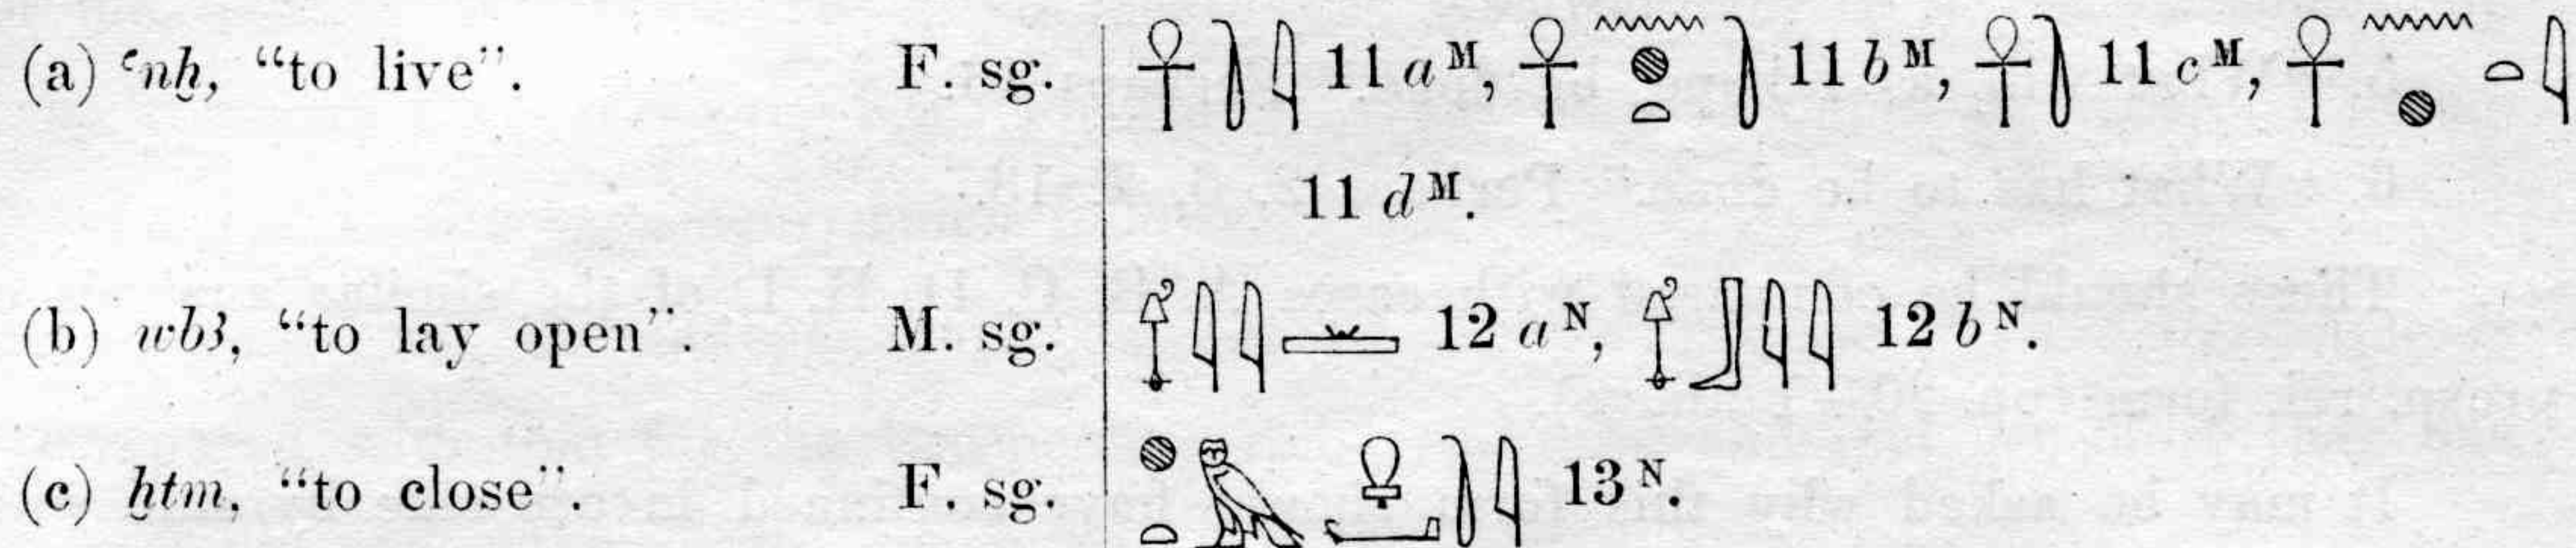 (a) ꜥnḫ, “to live”. F. sg. 𓋹𓋴𓇋 11 aᴹ, 𓋹𓈖𓐍𓏏𓋴 11 bᴹ, 𓋹𓋴 11 cᴹ, 𓋹𓈖𓐍𓏏𓇋
11 dᴹ.
(b) wbꜣ, “to lay open”. M. sg. 𓍎𓇋𓇋𓏛 12 aᴺ, 𓍎𓃀𓇋𓇋 12 bᴺ.
(c) ḫtm, “to close”. F. sg. 𓐍𓏏𓅓𓋩𓂝𓋴𓇋 13ᴺ.